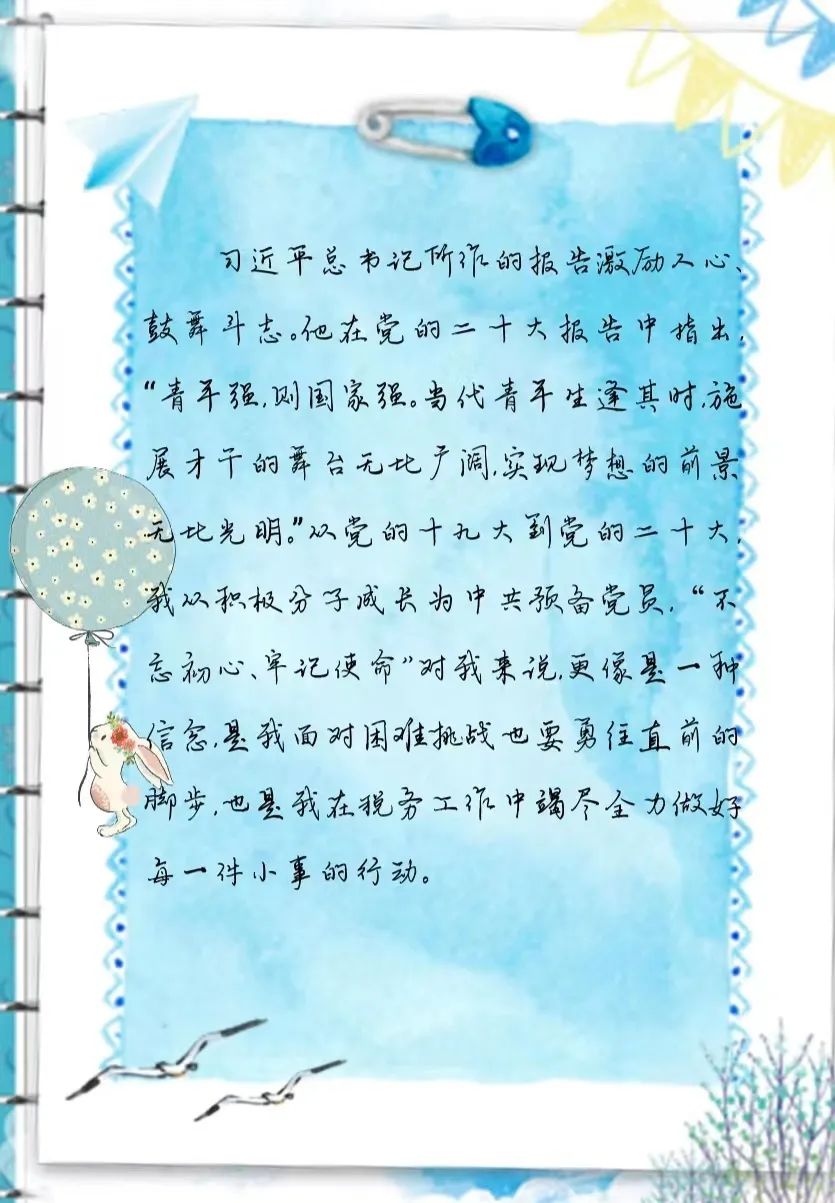 习近平总书记所作的报告激励人心、
鼓舞斗志。他在党的二十大报告中指出,
“青年强,则国家强。当代青年生逢其时,施
展才干的舞台无比广阔,实现梦想的前景
无比光明。”从党的十九大到党的二十大,
我从积极分子成长为中共预备党员,“不
忘初心、牢记使命”对我来说,更像是一种
信念,是我面对困难挑战也要勇往直前的
脚步,也是我在税务工作中竭尽全力做好
每一件小事的行动。